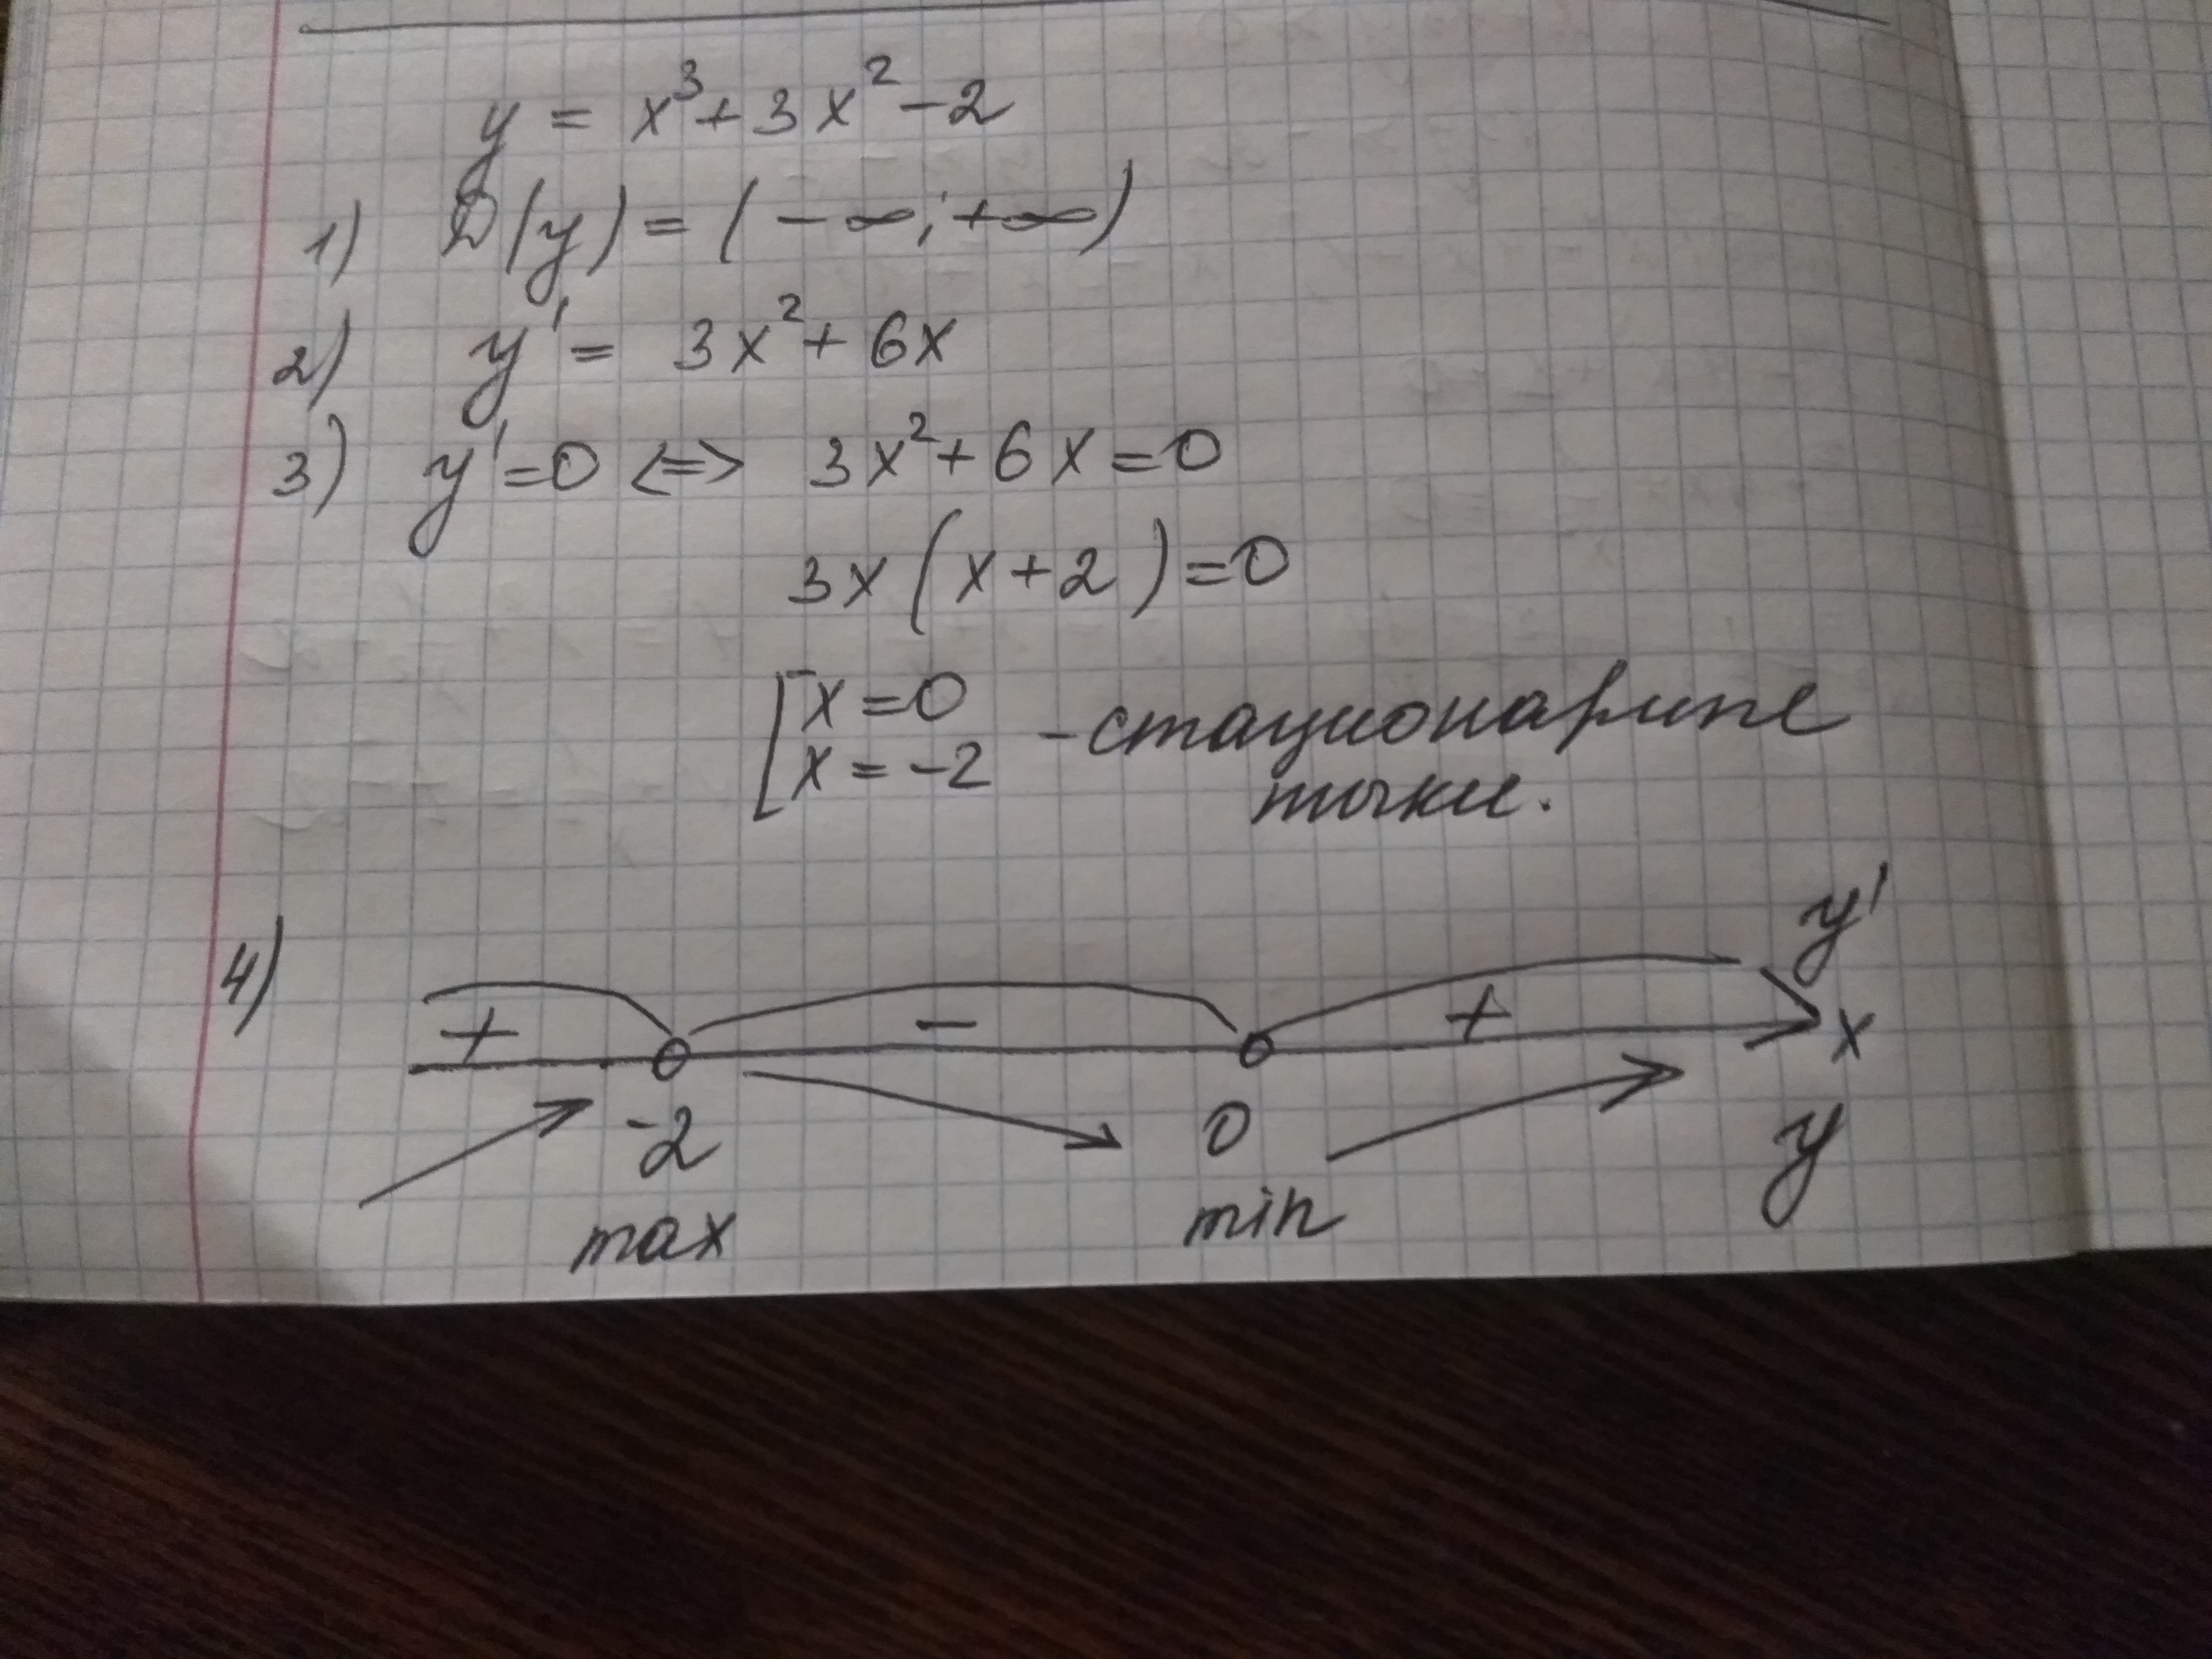 y = x³ + 3x² - 2
1) D(y) = (-∞; +∞)
2) y' = 3x² + 6x
3) y' = 0 <=> 3x² + 6x = 0
3x(x + 2) = 0
[x = 0
x = -2 - стационарные
точки.
4) y'
+ - + x
-2 0 y
max min